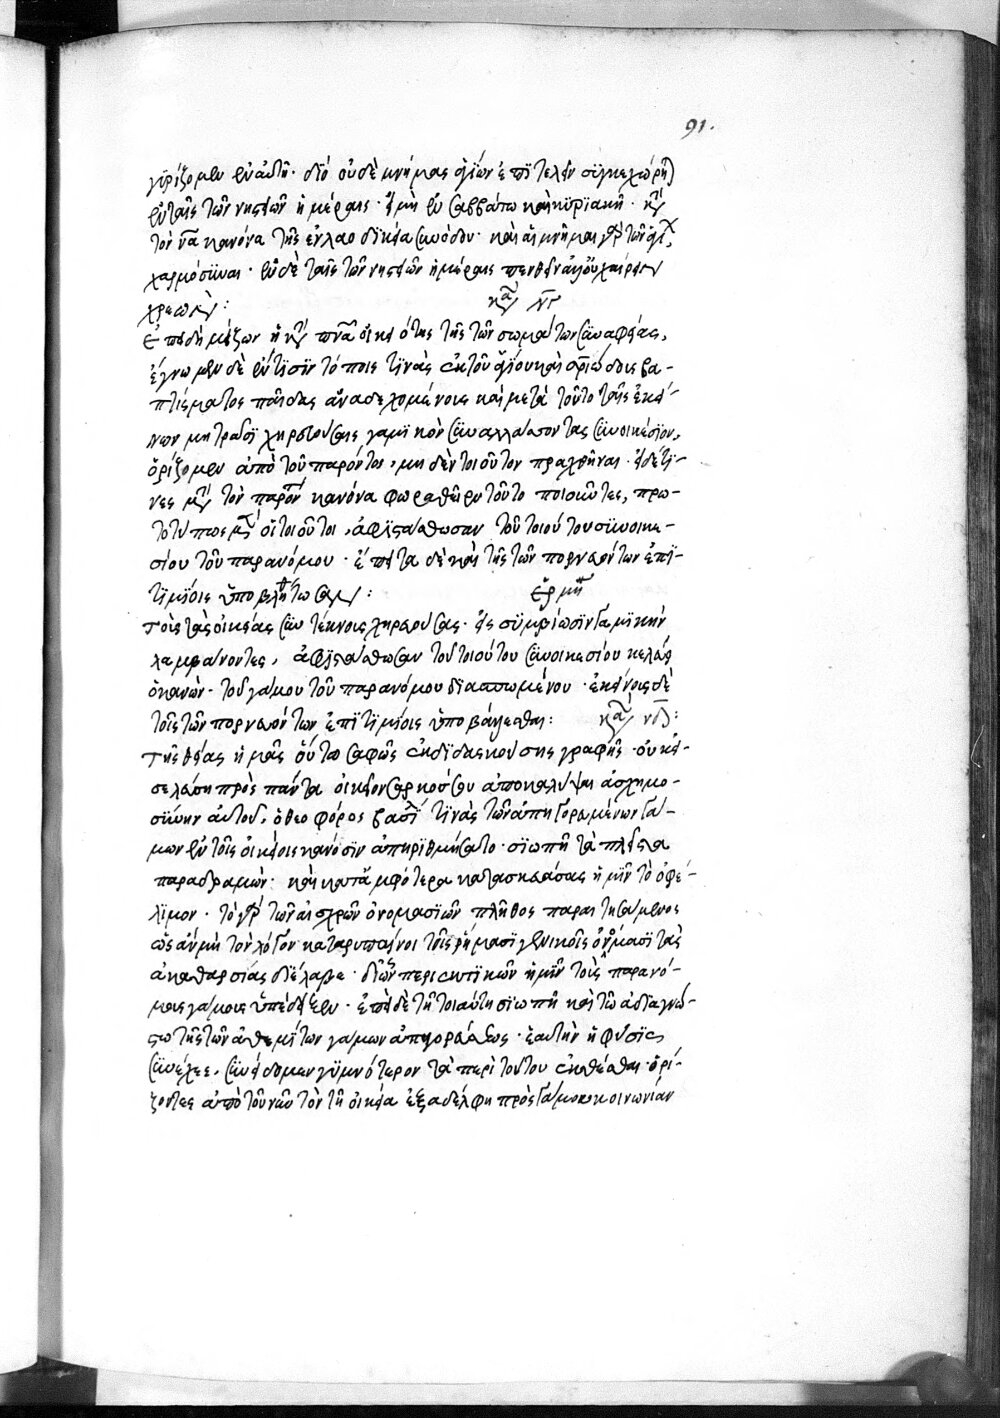 91.
γυρίζομεν ἐν αὐτῆ· διό οὐδὲ μνήμας ἁγίων ἐπιτελεῖν συγκεχώρη)
ἐν ταῖς τῶν νηστειῶν ἡμέραις· εἰ μὴ ἐν σαββάτω καὶ κυριακῆ· κ(α)τ(ὰ)
τὸν να κανόνα τῆς ἐν λαοδικεία συνόδου· καὶ αἱ μνῆμαι γὰρ τῶν ἁγί(ων)
χαρμόσυναι· ἐν δὲ ταῖς τῶν νηστειῶν ἡμέραις πενθεῖν ἀλλ' οὐ χαίρειν
χρεὼν: κανὼν νγ
Ἐπειδὴ μείζων ἡ κατὰ πνα οἰκειότης τῆς τῶν σωμάτων συναφείας,
ἔγνωμεν δὲ ἔν τισιν τόποις τινὰς ἐκ τοῦ ἁγίου καὶ σριώδους βα-
πτίσματος παῖδας ἀναδεχομένους καὶ μετὰ τοῦτο ταῖς ἐκεί-
νων μητράσι χηρευούσαις γαμικὸν συναλλάσσοντας συνοικέσιον,
ὁρίζομεν ἀπὸ τοῦ παρόντος μηδὲν τοιοῦτον πραχθῆναι· εἰ δέ τι-
νες μετὰ τὸν παρόντα κανόνα φωραθεῖεν τοῦτο ποιοῦντες, πρω-
τοτύπως μὲν οἱ τοιοῦτοι, ἀφιστάσθωσαν τοῦ τοιούτου συνοικε-
σίου τοῦ παρανόμου· ἔπειτα δὲ καὶ τῆς τῶν πορνευόντων ἐπι-
τιμίοις ὑποβληθήτωσαν: ἑρμη
τοὺς τὰς οἰκείας συντέκνους χηρευούσας· εἰς συμβίωσιν γαμικὴν
λαμβάνοντες, ἀφίστασθαι τοῦ τοιούτου συνοικεσίου κελεύει
ὁ κανών· τοῦ γάμου τοῦ παρανόμου διασπωμένου· ἐκείνους δὲ
τοῖς τῶν πορνευόντων ἐπιτιμίοις ὑποβάλλεσθαι: κανὼν νδ:
Τῆς θείας ἡμᾶς οὕτω σαφῶς ἐκδιδασκούσης γραφῆς· οὐκ εἰ-
σελεύση πρὸς πάντα οἰκεῖον σαρκός σου ἀποκαλύψαι ἀσχημο-
σύνην αὐτοῦ, ὁ θεοφόρος βασί τινὰς τῶν ἀπηγορευμένων γά-
μων ἐν τοῖς οἰκείοις κανόσιν ἀπηριθμήσατο· σιωπῆ τὰ πλεῖστα
παραδραμών· καὶ κατ' ἀμφότερα κατασκευάσας ἡμῖν τὸ ὀφέ-
λιμον· τὸ γὰρ τῶν αἰσχρῶν ὀνομασιῶν πλῆθος παραιτησάμενος
ὡς ἂν μὴ τὸν λόγον καταρρυπαίνοι τοῖς ῥήμασι γενικοῖς ὀνόμασι τὰς
ἀκαθαρσίας διέλαβε· δι' ὧν περιεκτικῶν ἡμῖν τοὺς παρανό-
μους γάμους ὑπέδειξεν· ἐπεὶ δὲ τῆ τοιαύτη σιωπῆ καὶ τῶ ἀδιαγνώ-
στω τῆς τῶν ἀθεμίτων γάμων ἀπαγορεύσεως· ἑαυτὴν ἡ φύσις
συνέχεε, συνείδομεν γυμνότερον τὰ περὶ τούτου ἐκθέσθαι· ὁρί-
ζοντες ἀπὸ τοῦ νῦν τὸν τῆ οἰκεία ἐξαδέλφη πρὸς γάμου κοινωνίαν